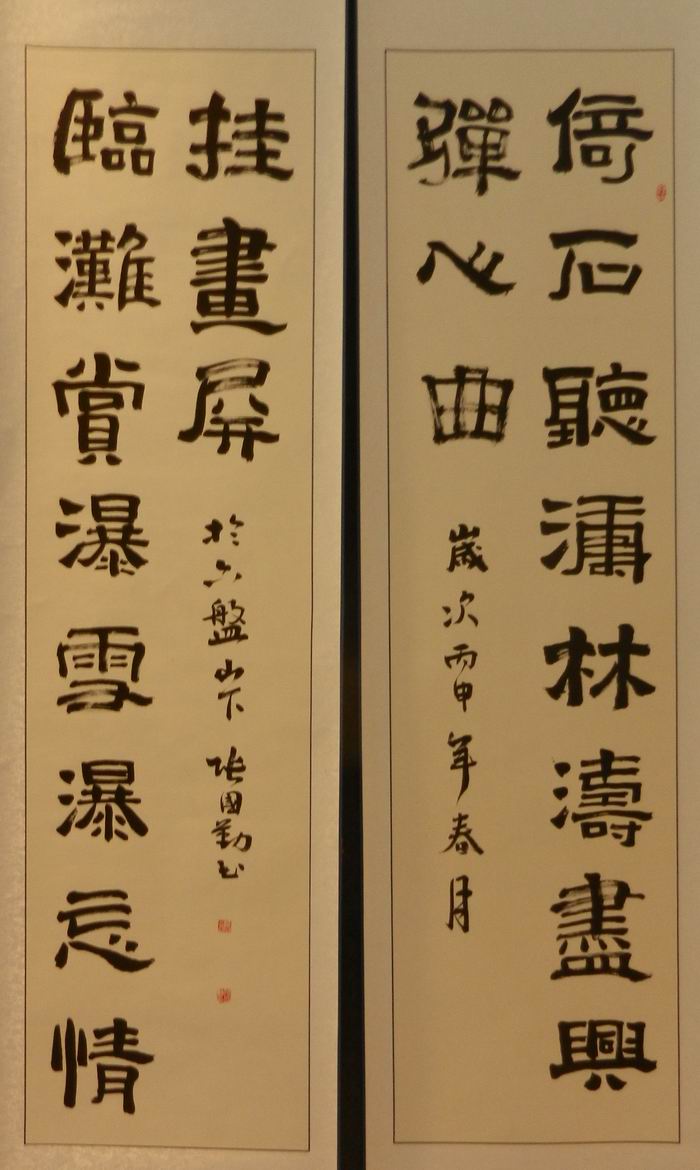 倚石聽潚林濤盡興
彈心曲
歲次丙申年春月
臨灘賞瀑雪瀑忘情
挂畫屏
於六盤山下 張國勤书